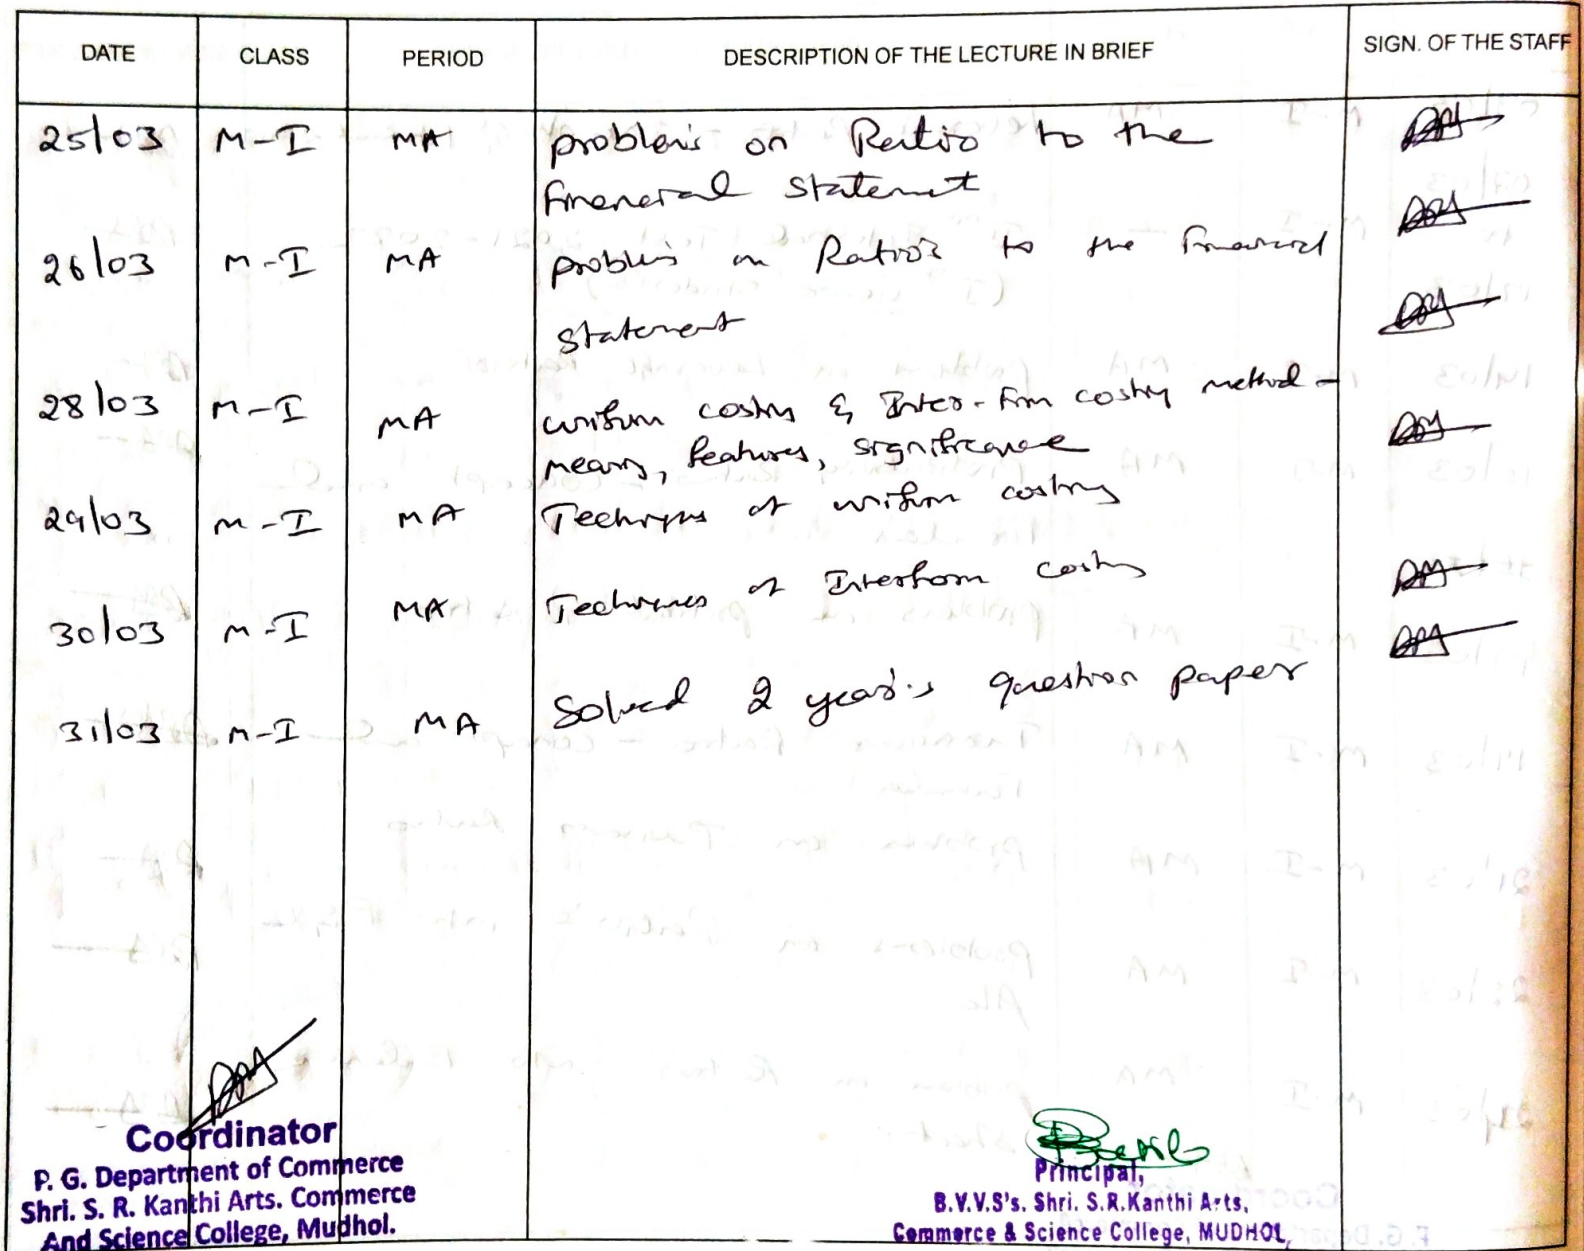 DATE CLASS PERIOD DESCRIPTION OF THE LECTURE IN BRIEF SIGN. OF THE STAFF
25/03 M-I MA problem's on Ratio to the
financial statement
26/03 M-I MA problem's on Ratio's to the financial
statement
28/03 M-I MA uniform costing & Inter-firm costing method -
meaning, features, significance
29/03 M-I MA Techniques of uniform costing
30/03 M-I MA Techniques of Interfirm costing
31/03 M-I MA Solved 2 year's question paper
Coordinator
P. G. Department of Commerce
Shri. S. R. Kanthi Arts. Commerce
And Science College, Mudhol.
Principal,
B.V.V.S's. Shri. S.R.Kanthi Arts,
Commerce & Science College, MUDHOL,